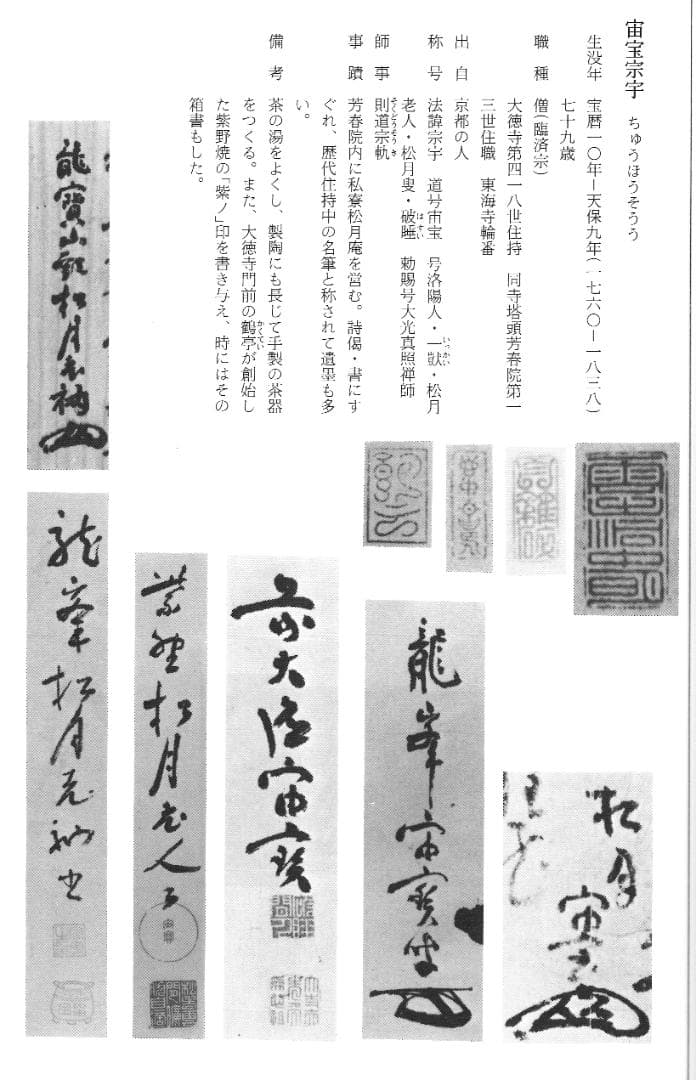 宙宝宗宇 ちゅうほうそうう
生没年 宝暦一〇年―天保九年(一七六〇―一八三八)
七十九歳
職種 僧(臨済宗)
大徳寺第四一八世住持 同寺塔頭芳春院第一
三世住職 東海寺輪番
出自 京都の人
称号 法諱宗宇 道号宙宝 号洛陽人・一獃・松月
いっかい
老人・松月叟・破睡 勅賜号大光真照禅師
はすい
師事 則道宗軌
そくどうそうき
事蹟 芳春院内に私寮松月庵を営む。詩偈・書にす
ぐれ、歴代住持中の名筆と称されて遺墨も多
い。
備考 茶の湯をよくし、製陶にも長じて手製の茶器
をつくる。また、大徳寺門前の鶴亭が創始し
かくてい
た紫野焼の「紫ノ」印を書き与え、時にはその
箱書もした。
松月
宙宝
龍峯宙寶
前大徳宙寶
紫野松月老人
龍峯松月老衲
龍寶山主松月老衲